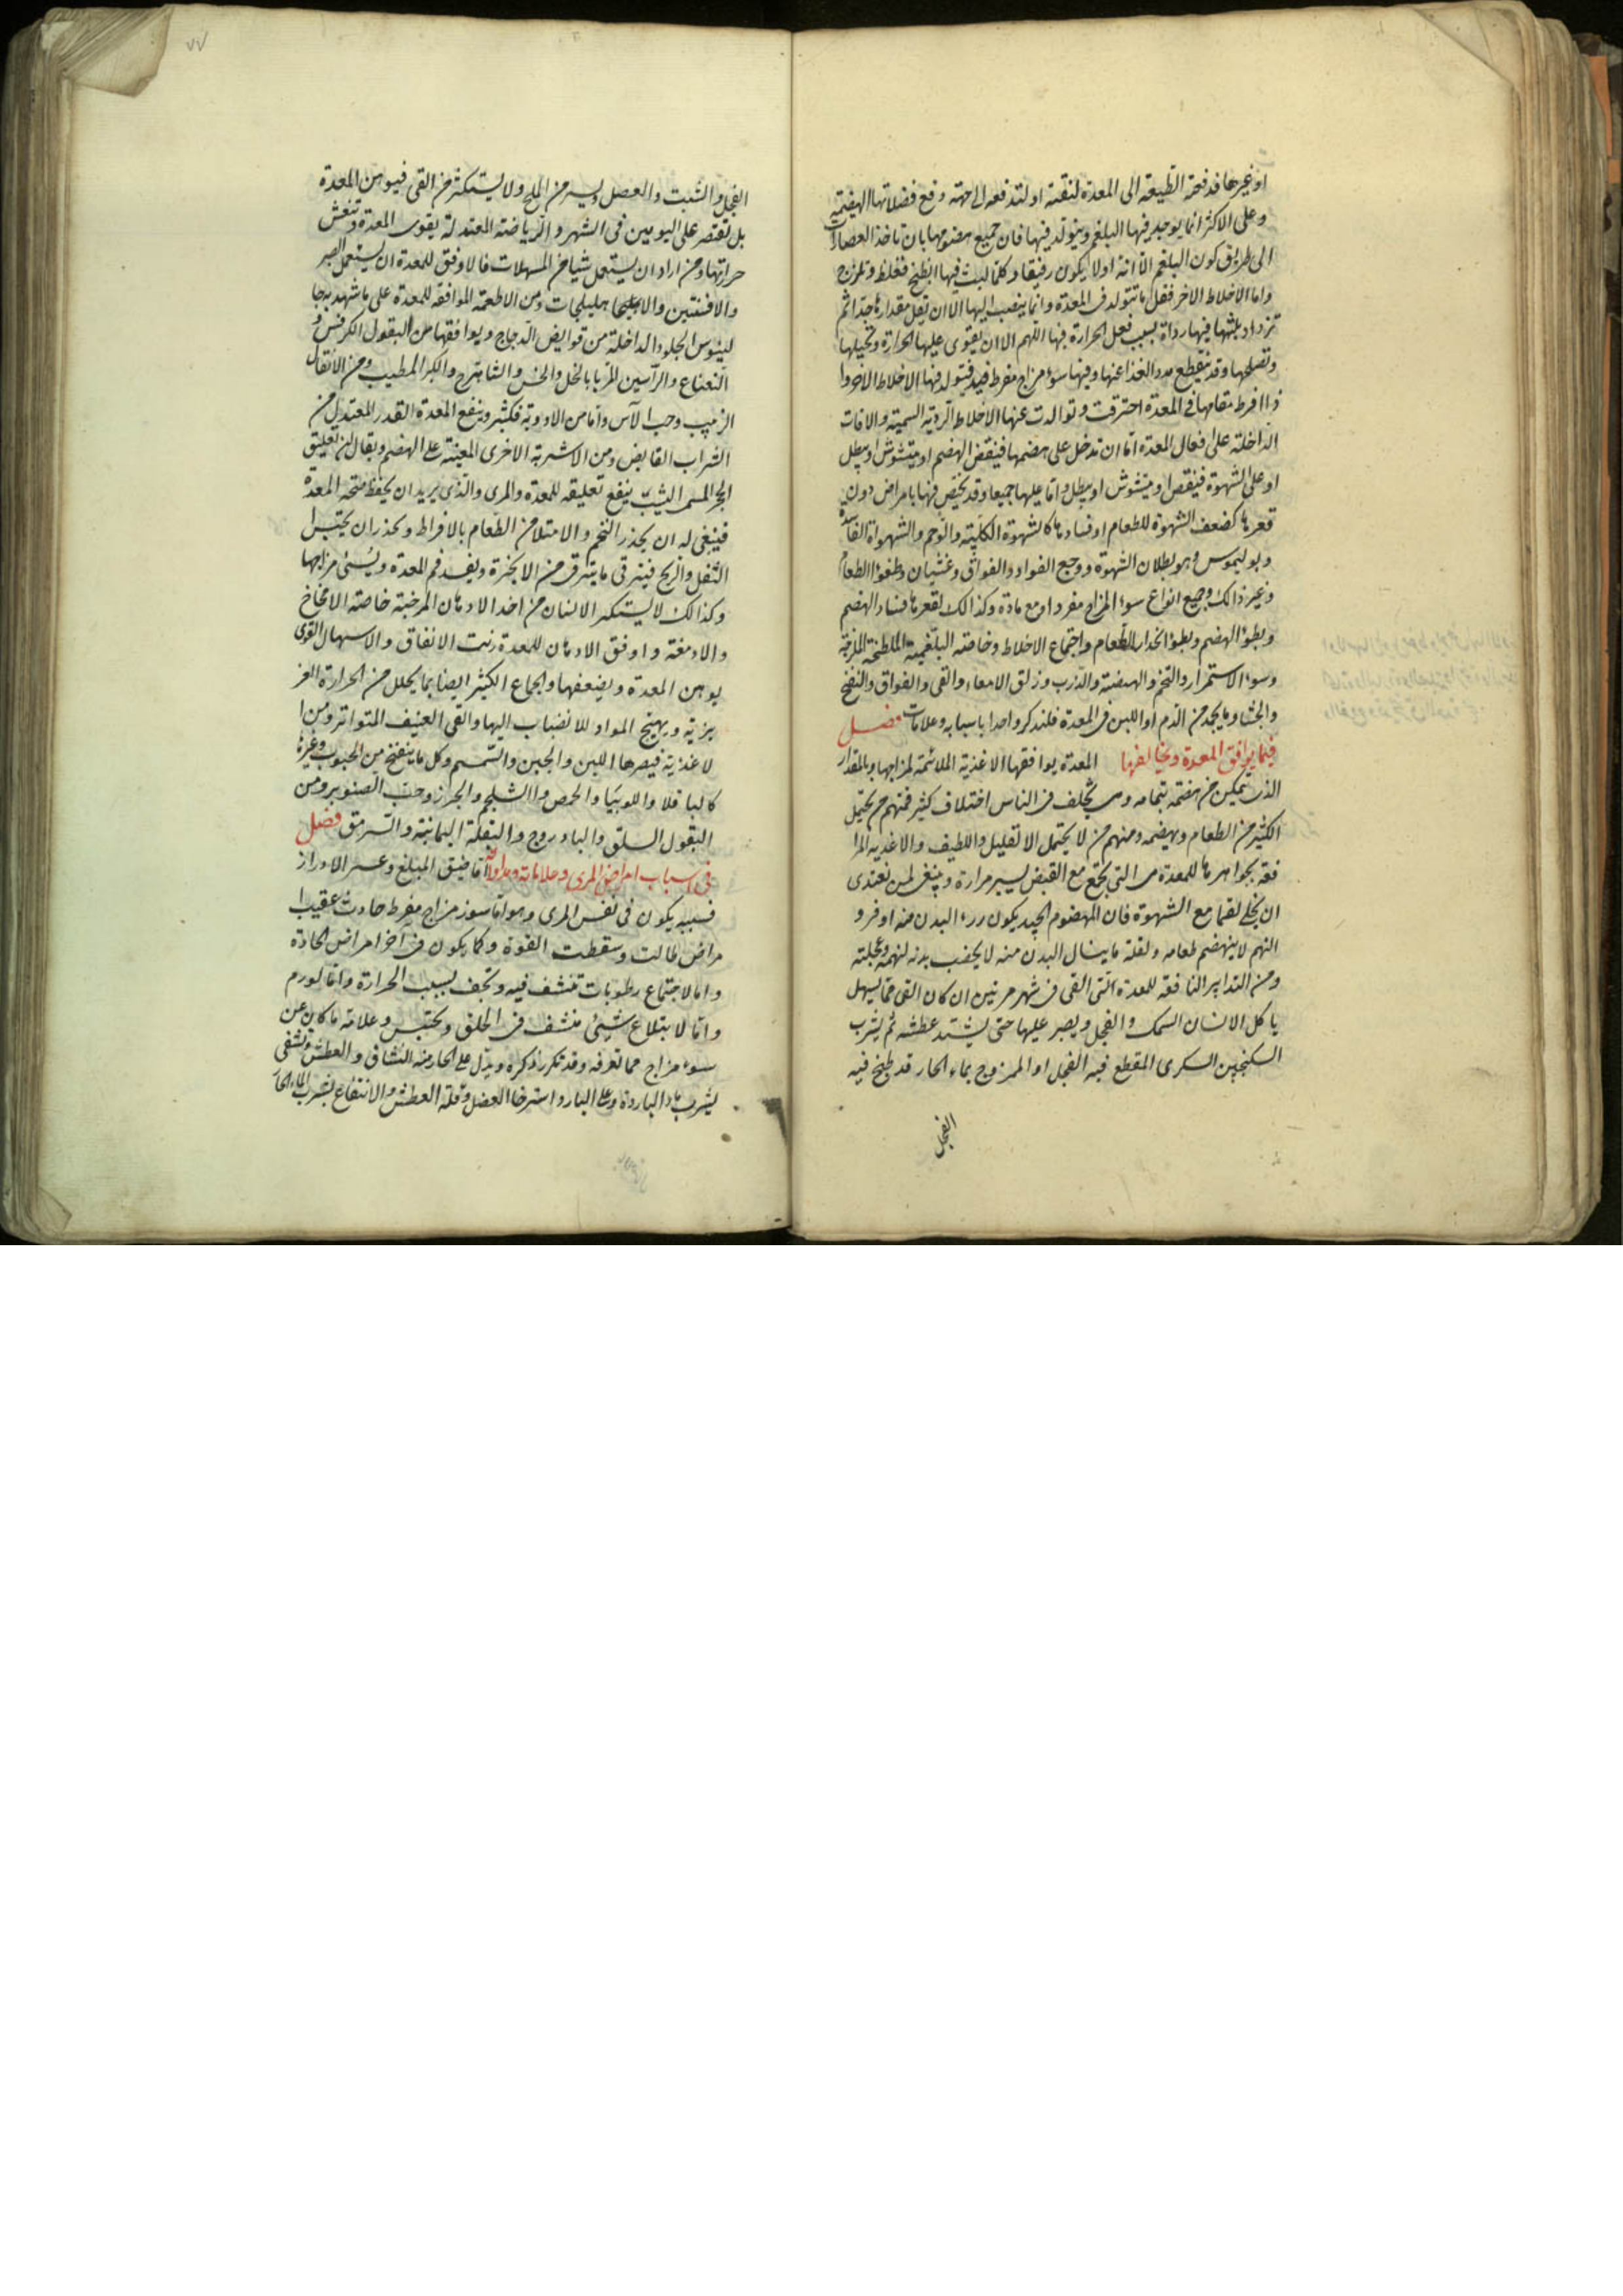 او غيرها فدفعته الطبيعة الى المعدة لنقتة او لتدفعه الى جهة دفع فضلاتها الهضمية
وعلى الاكثر انما يوجد فيها البلغم ويتولد فيها فان جميع هضومها بان تاخذ العصارات
الى طريق كون البلغم الا انه اولا يكون رقيقا وكلما لبث فيها انطبخ فغلظ وتلزج
واما الاخلاط الاخر فقل ما تتولد فى المعدة وانما ينصب اليها الا ان يقل مقدارها جدا ثم
تزداد بلبثها فيها رداة بسبب فعل الحرارة فيها اللهم الا ان يقوى عليها الحرارة وتحيلها
وتصلحها وقد ينقطع مدد الغذا عنها وفيها سوء مزاج مفرط فيتولد فيها الاخلاط الاخر وا
ذا افرط مقامها فى المعدة احترقت وتوالدت عنها الاخلاط الردية السمية والافات
الداخلة على افعال المعدة اما ان تدخل على هضمها فينقص الهضم او يتشوش او يبطل
او على الشهوة فينقص او يتشوش او يبطل واما عليها جميعا وقد يختص فمها بامراض دون
قعرها كضعف الشهوة للطعام او فسادها كالشهوة الكلبية والوحم والشهواة الفاسدة
وبوليموس وهو بطلان الشهوة ووجع الفواد والفواق وغشيان وطفوا الطعام
وغير ذالك وجميع انواع سوء المزاج مفردا ومع مادة وكذالك لقعرها فساد الهضم
وبطؤ الهضم وبطؤ انحدار الطعام واجتماع الاخلاط وخاصة البلغمية الملطخة اللزجة
وسوء الاستمرار والتخم والهيضة والذرب وزلق الامعاء والقى والفواق والنفخ
والجشا وما يجمد من الدم او اللبن فى المعدة فلنذكر واحدا باسبابه وعلامات فصل
فيما يوافق المعدة ويخالفها المعدة يوافقها الاغذية الملائمة لمزاجها وبالمقدار
الذى يمكن من هضمة بتمامه ومى تختلف فى الناس اختلاف كثير فمنهم من يحتمل
الكثير من الطعام ويهضمه ومنهم من لا يحتمل الا لقليل واللطيف والاغذية الموا
فقة بجواهرها للمعدة مى التى تجمع مع القبض يسير مرارة وينبغى لمن تغذى
ان يخلى لقما مع الشهوة فان المهضوم الجيد يكون ردء البدن منه اوفر و
النهم لا ينهضم طعامه ولقلة ما ينال البدن منه لا يخصب بدنه لنهمه وعجلته
ومن التدابير النافعة للمعدة التى القى فى شهر مرتين ان كان القى مما يسهل
ياكل الانسان السمك والفجل ويصبر عليها حتى يشتد عطشه ثم يشرب
السكنجبين السكرى المقطع فيه الفجل او الممزوج بماء الحار قد طبخ فيه
الفجل
٧٧
الفجل والشبت والعسل ويسير من الملح ولا يستكثر من القى فيوهن المعدة
بل تقتصر على اليومين فى الشهر والرياضة المعتدلة يقوى المعدة وتنعش
حراتها ومن اراد ان يستعمل شيا من المسهلات فالاوفق للمعدة ان يستعمل الصبر
والافسنتين والا هليلجات ومن الاطعمة الموافقة للمعدة على ما شهد به جا
لينوس الجلود الداخلة من قوايض الدجاج ويوافقها من البقول الكرفس و
النعناع والراسين المربا بالخل والخس والشاهترج والكبر المطيب ومن الانقال
الزبيب وحب الآس واما من الادوية فكثير وينفع المعدة القدر المعتدل من
الشراب القابض ومن الاشربة الاخرى المعينة على الهضم ويقال ان تعليق
الحجر المسمى اليشب ينفع تعليقه للمعدة والمرى والذى يريد ان يحفظ صحة المعدة
فينبغى له ان يحذر التخم والامتلا من الطعام بالافراط ويحذر ان يحتبس ا
الثفل والريح فيترقى ما يترقى من الابخرة ويفسد فم المعدة ويسئ مزاجها
وكذالك لا يستكثر الانسان من اخذ الادهان المرخية خاصة الامخاخ
والادمغة واوفق الادهان للمعدة زيت الانفاق والاسهال القوى
يوهن المعدة ويضعفها والجماع الكثير ايضا بما يحلل من الحرارة الغر
يزية ويهيج المواد للانصباب اليها والقى العنيف المتواتر ومن ا
لاغذية فيصرها اللبن والجبن والسمسم وكل ما ينفخ من الحبوب وغيرها
كالباقلا واللوبيا والحمص والشلجم والجزر وحب الصنوبر ومن
البقول السلق والبادروج والبقلة اليمانية والسرمق فصل
فى اسباب امراض المرى وعلاماته ومداواته اما ضيق المبلغ وعسر الازدراز
فسببه يكون فى نفس المرى وهو اما سوء مزاج مفرط حادث عقيب ا
مراض طالت وسقطت القوة وكما يكون فى اخر امراض الحادة
واما لاجتماع رطوبات تنشف فيه وتجف بسبب الحرارة واما لورم
واما لابتلاع شيئ منشف فى الحلق ويحتبس وعلامة ما كان عن
سوء مزاج مما تعرفه وقد تكرر ذكره ويدل على الحار منه النشاف والعطش وتشفى
بشرب ماء الباردة وعلى البارد استرخا العضل وقلة العطش والانتفاع بشرب الماء الحار